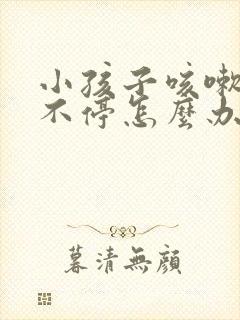 小孩子咳嗽
不停怎麼办
暮清無顏